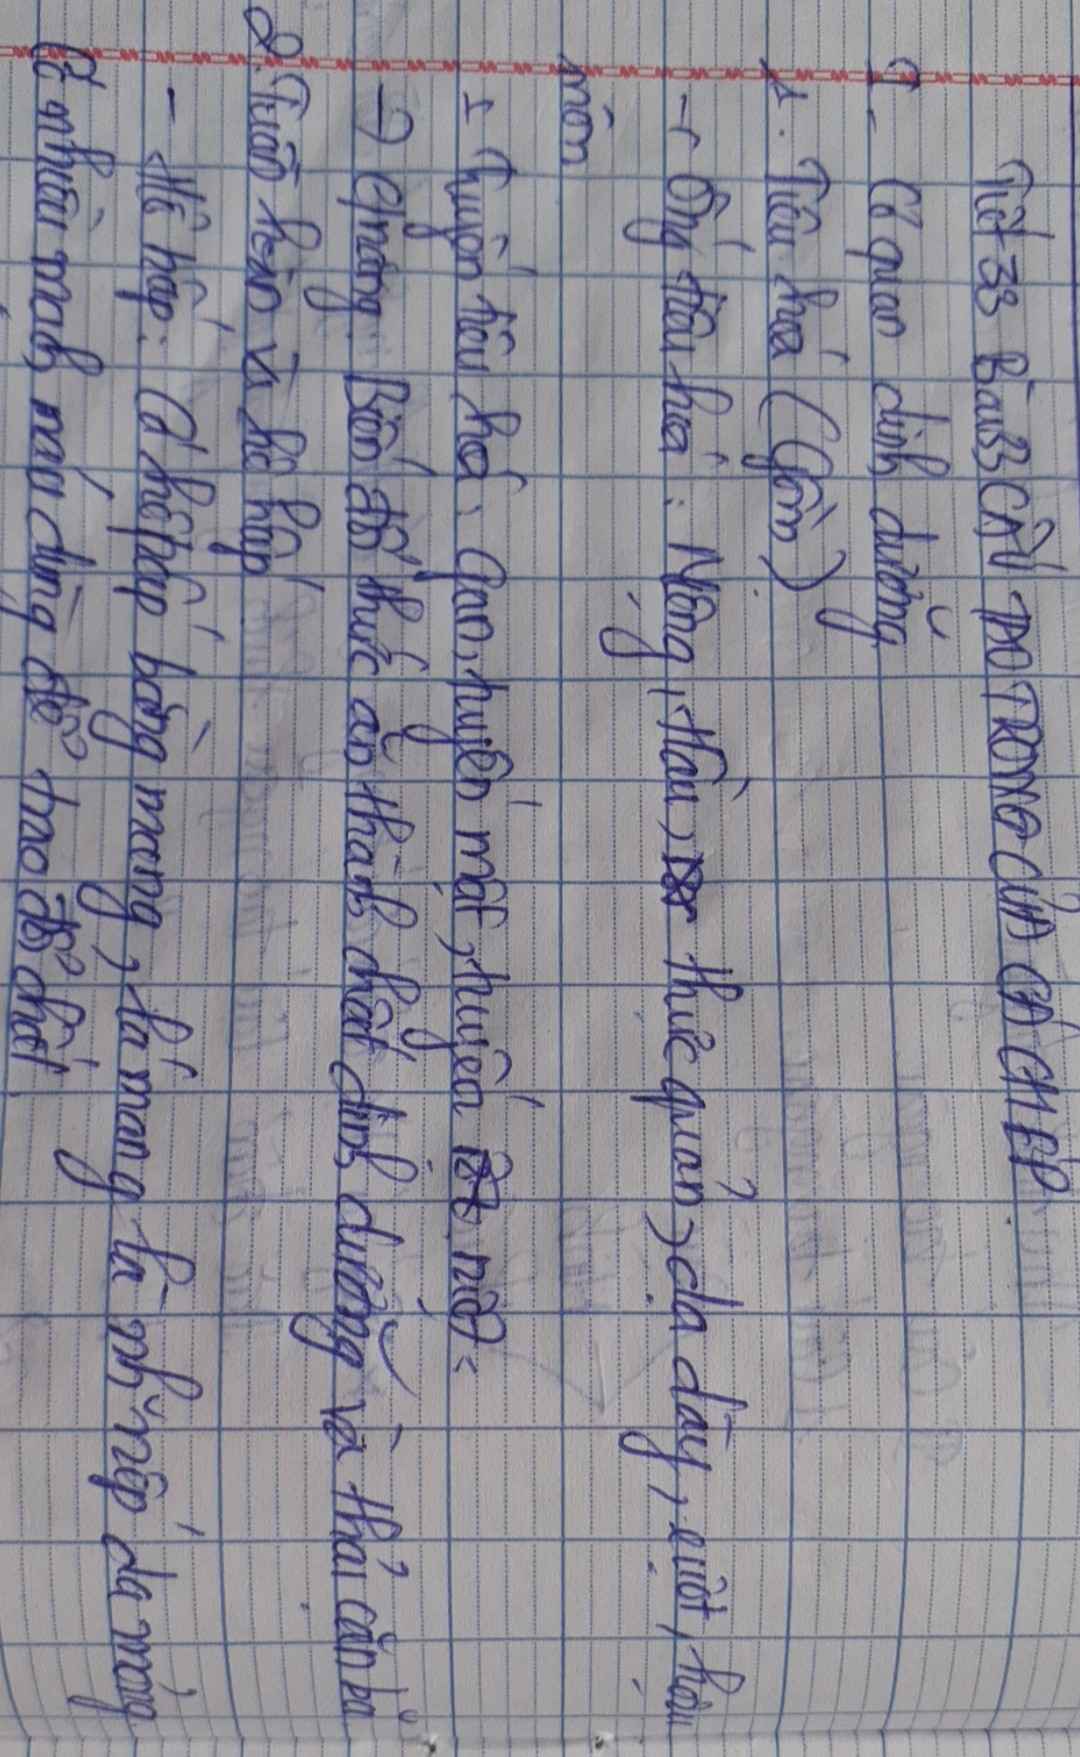 Tiết 33 Bài 33 CẤU TẠO TRONG CỦA CÁ CHÉP
I. Cơ quan dinh dưỡng
1. Tiêu hoá (Gồm)
- Ống tiêu hoá: Miệng, hầu, thực quản, dạ dày, ruột, hậu
môn
- Tuyến tiêu hoá: Gan, tuyến mật, tuyến ruột
→ Chức năng: Biến đổi thức ăn thành chất dinh dưỡng và thải cặn bã
2. Tuần hoàn và hô hấp
- Hô hấp: Cá hô hấp bằng mang, lá mang là những nếp da mỏng
có nhiều mạch máu dùng để trao đổi chất